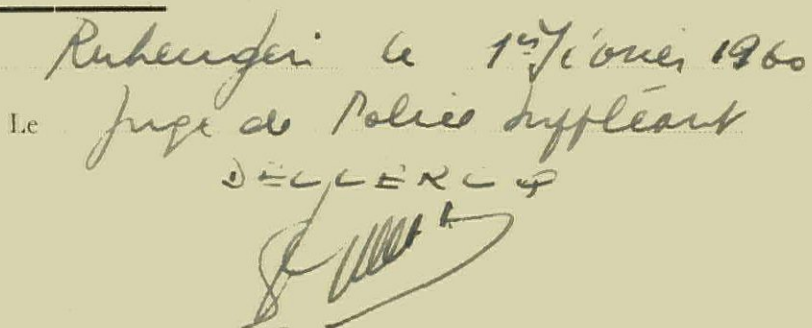 Ruhengeri le 1er février 1960
Le Juge de Police suppléant
DECLERCQ